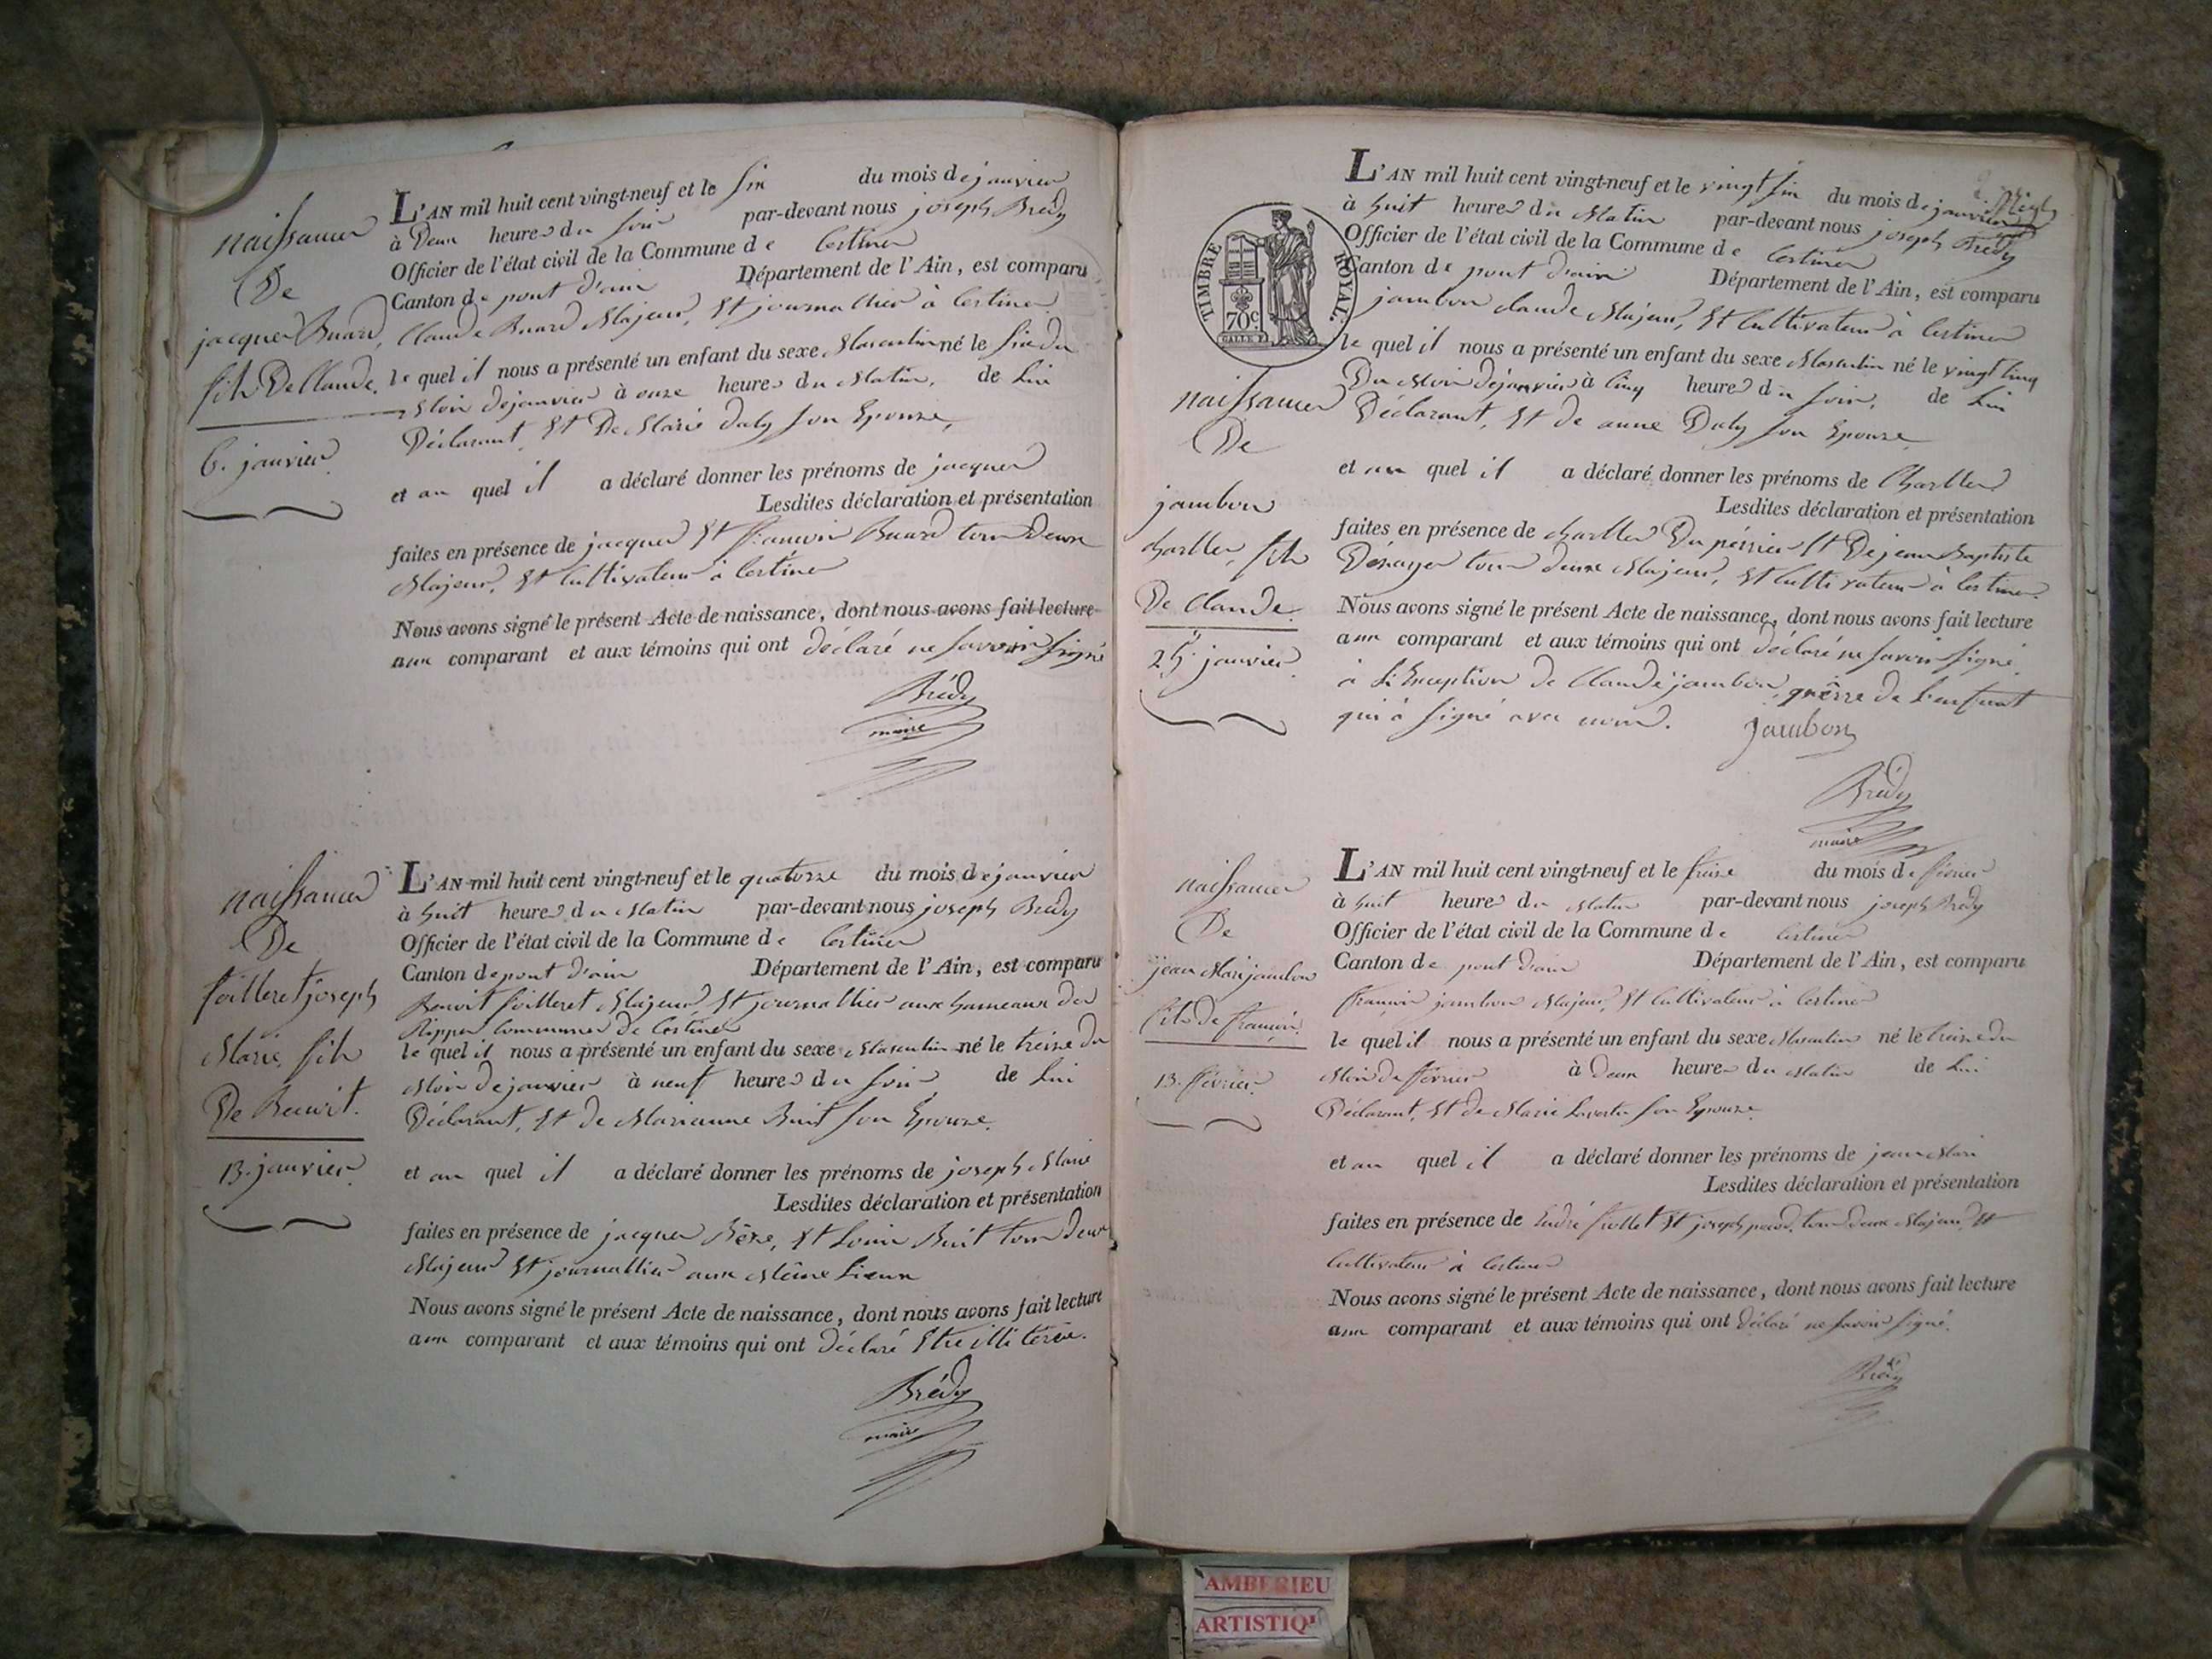 naissance
De
jacques Buard,
fils De Claude.
6. janvier
L'AN mil huit cent vingt-neuf et le six du mois de janvier
à Deux heures du soir par-devant nous joseph Brédy
Officier de l'état civil de la Commune de Certines
Canton de pont d'ain Département de l'Ain, est comparu
Claude Buard Majeur, Et journallier à Certines
le quel il nous a présenté un enfant du sexe Masculin né le six du
Mois de janvier à onze heures du Matin, de Lui
Déclarant, Et De Marie Daly son Epouse,
et au quel il a déclaré donner les prénoms de jacques
Lesdites déclaration et présentation
faites en présence de jacques Et françois Buard tous Deux
Majeurs, Et Cultivateurs à Certines
Nous avons signé le présent Acte de naissance, dont nous avons fait lecture
aux comparant et aux témoins qui ont déclaré ne savoir signé
Brédy
maire
naissance
De
foilleret joseph
Marie, fils
De Benoit.
13. janvier
L'AN mil huit cent vingt-neuf et le quatorze du mois de janvier
à huit heures du Matin par-devant nous joseph Brédy
Officier de l'état civil de la Commune de Certines
Canton de pont d'ain Département de l'Ain, est comparu
Benoit foilleret Majeur, Et journallier aux hameaux des
Rippes Communes de Certines
le quel il nous a présenté un enfant du sexe Masculin né le treize du
Mois de janvier à neuf heures du soir de Lui
Déclarant, Et de Marianne Buit son Epouse.
et au quel il a déclaré donner les prénoms de joseph Marie
Lesdites déclaration et présentation
faites en présence de jacques, Et Louis Buit tous deux
Majeurs Et journalliers aux Même Lieux
Nous avons signé le présent Acte de naissance, dont nous avons fait lecture
aux comparant et aux témoins qui ont déclaré Etre illitérée.
Brédy
maire
TIMBRE ROYAL.
70c.
naissance
De
jambon
Charlles, fils
De Claude.
25. janvier
L'AN mil huit cent vingt-neuf et le vingt six du mois de janvier
à huit heures du Matin par-devant nous joseph Brédy
Officier de l'état civil de la Commune de Certines
Canton de pont d'ain Département de l'Ain, est comparu
jambon Claude Majeur, Et Cultivateur à Certines
le quel il nous a présenté un enfant du sexe Masculin né le vingt cinq
Du Mois de janvier à Cinq heures du soir, de Lui
Déclarant, Et de anne Daly son Epouse
et au quel il a déclaré donner les prénoms de Charlles
Lesdites déclaration et présentation
faites en présence de Charlles Du périer Et De jean Baptiste
tous deux Majeurs, Et Cultivateurs à Certines.
Nous avons signé le présent Acte de naissance, dont nous avons fait lecture
aux comparant et aux témoins qui ont déclaré ne savoir signé
à L'Exception de Claude jambon, père de L'enfant
qui à signé avec nous. jambon
Brédy
maire
naissance
De
jean Mari jambon
fils de françois.
13. février
L'AN mil huit cent vingt-neuf et le treize du mois de février
à huit heures du Matin par-devant nous joseph Brédy
Officier de l'état civil de la Commune de Certines
Canton de pont d'ain Département de l'Ain, est comparu
françois jambon Majeur, Et Cultivateur à Certines
le quel il nous a présenté un enfant du sexe Masculin né le treize du
Mois de février à deux heures du Matin de Lui
Déclarant, Et de Marie son Epouse.
et au quel il a déclaré donner les prénoms de jean Mari
Lesdites déclaration et présentation
faites en présence de Et joseph tous deux Majeurs, Et
Cultivateurs à Certines
Nous avons signé le présent Acte de naissance, dont nous avons fait lecture
aux comparant et aux témoins qui ont déclaré ne savoir signé.
Brédy
AMBERIEU
ARTISTIQ